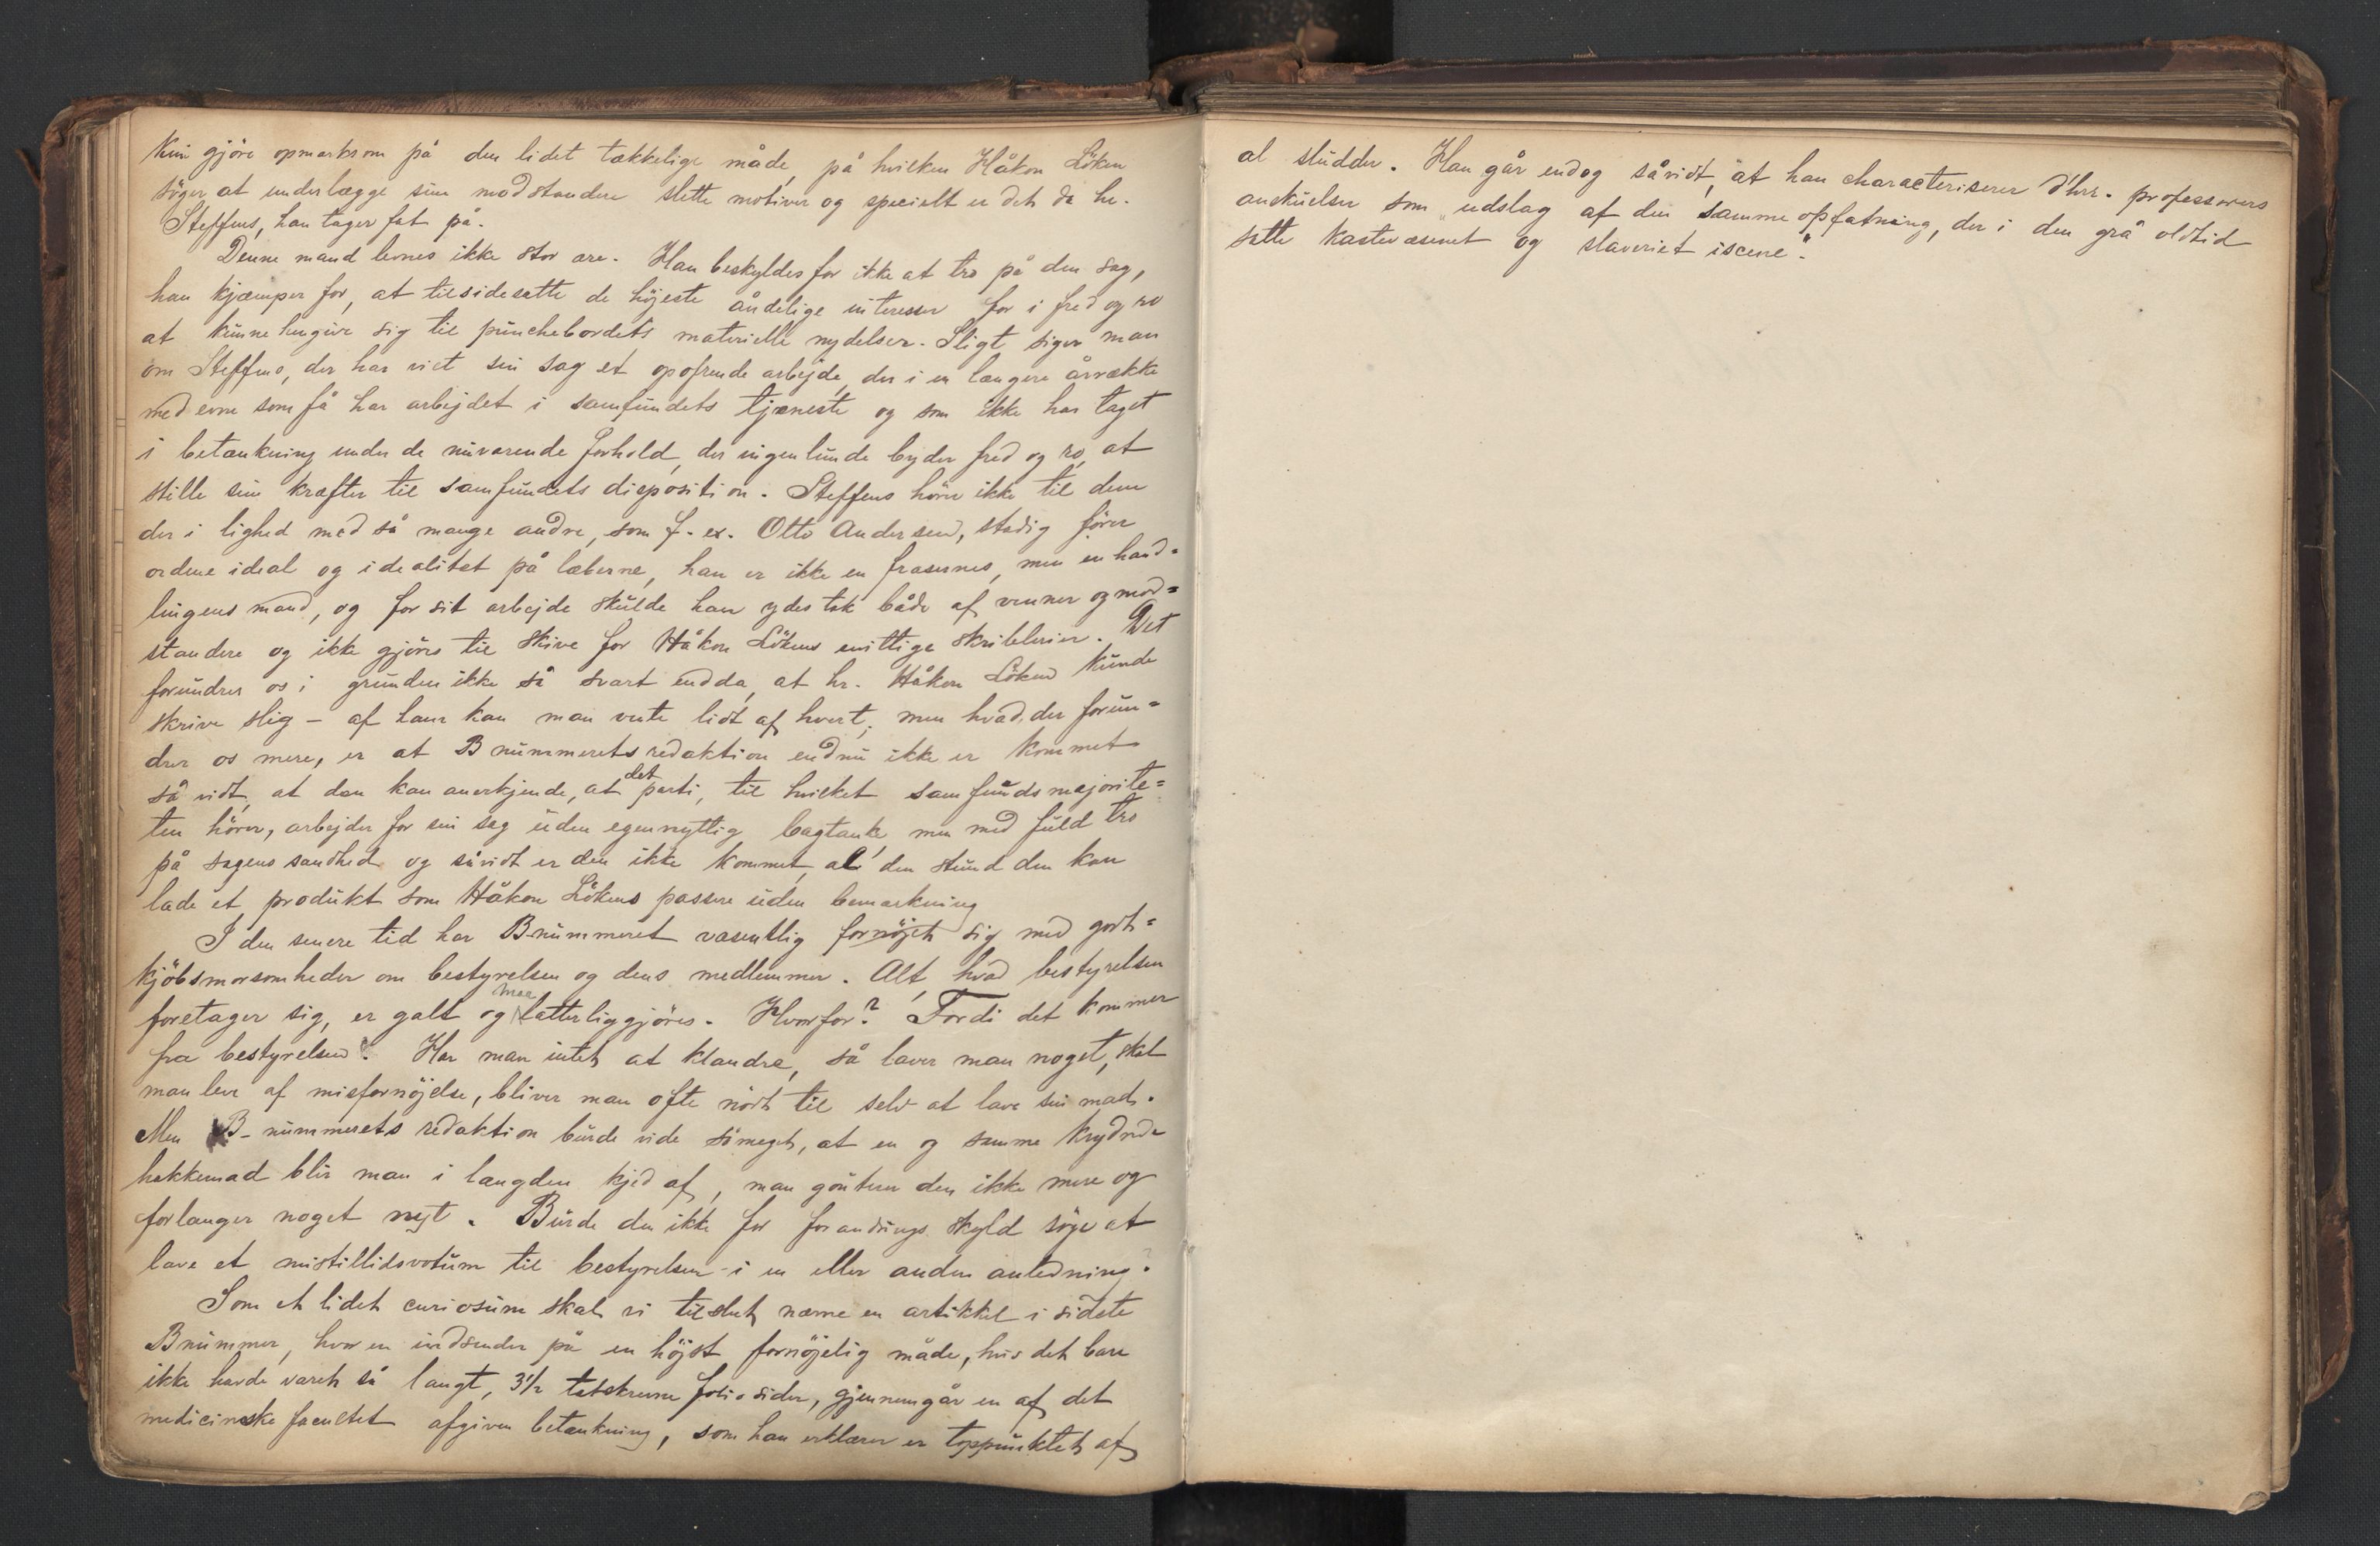 kun gjöre opmærksom på den lidet tækkelige måde, på hvilken Håkon Löken
söger at underlægge sine modstandere slette motiver og specielt er det da hr.
Steffens, han tager fat på.
Denne mand levnes ikke stor ære. Han beskyldes for ikke at tro på den sag,
han kjæmper for, at tilsidesætte de höjeste åndelige interesser for i fred og ro
at kunne hengive sig til punchebordets materielle nydelser. Sligt siger man
om Steffens, der har viet sin sag et opofrende arbejde, der i en længere årrække
med evne som få har arbejdet i samfundets tjæneste og som ikke har taget
i betænkning under de nuværende forhold, der ingenlunde byder fred og ro, at
stille sine kræfter til samfundets disposition. Steffens hörer ikke til dem
der i lighed med så mange andre, som f. ex. Otto Andersen, stadig förer
ordene ideal og idealitet på læberne, han er ikke en frasernes, men en hand=
lingens mand, og for sit arbejde skulde han ydes tak både af venner og mod=
standere og ikke gjöres til skive for Håkon Lökens vittige skriblerier. Det
forundrer os i grunden ikke så svært endda, at hr. Håkon Löken kunde
skrive slig – af ham kan man vente lidt af hvert; men hvad der forun=
drer os mere, er at B nummerets redaktion endnu ikke er kommet
så vidt, at den kan anerkjende, at det parti, til hvilket samfundsmajorite=
ten hörer, arbejder for sin sag uden egennyttig bagtanke, men med fuld tro
på sagens sandhed og såvidt er den ikke kommet, al den stund den kan
lade et produkt som Håkon Lökens passere uden bemærkning
I den senere tid har B-nummeret væsentlig fornöjet sig med godt=
kjöbsmorsomheder om bestyrelsen og dens medlemmer. Alt, hvad bestyrelsen
foretager sig, er galt og maa latterliggjöres. Hvorfor? Fordi det kommer
fra bestyrelsen. Har man intet at klandre, så laver man noget, skal
man leve af misfornöjelse, bliver man ofte nödt til selv at lave sin mad.
Men B-nummerets redaktion burde vide såmeget, at en og samme krydrede
hakkemad blir man i længden kjed af, man gouterer den ikke mere og
forlanger noget nyt. Burde den ikke for forandrings skyld söge at
lave et mistillidsvotum til bestyrelsen i en eller anden anledning?
Som et lidet curiosum skal vi tilslut nævne en artikkel i sidste
B nummer, hvor en indsender på en höjst fornöjelig måde, hvis det bare
ikke havde været så langt, 3½ tætskrevne foliosider, gjennemgår en af det
medicinske facultet afgiven betænkning, som han erklærer er toppunktet af
al sludder. Han går endog såvidt, at han characteriserer d'hrr. professorers
anskuelser som "udslag af den samme opfatning, der i den grå oldtid
satte kastevæsenet og slaveriet iscene".